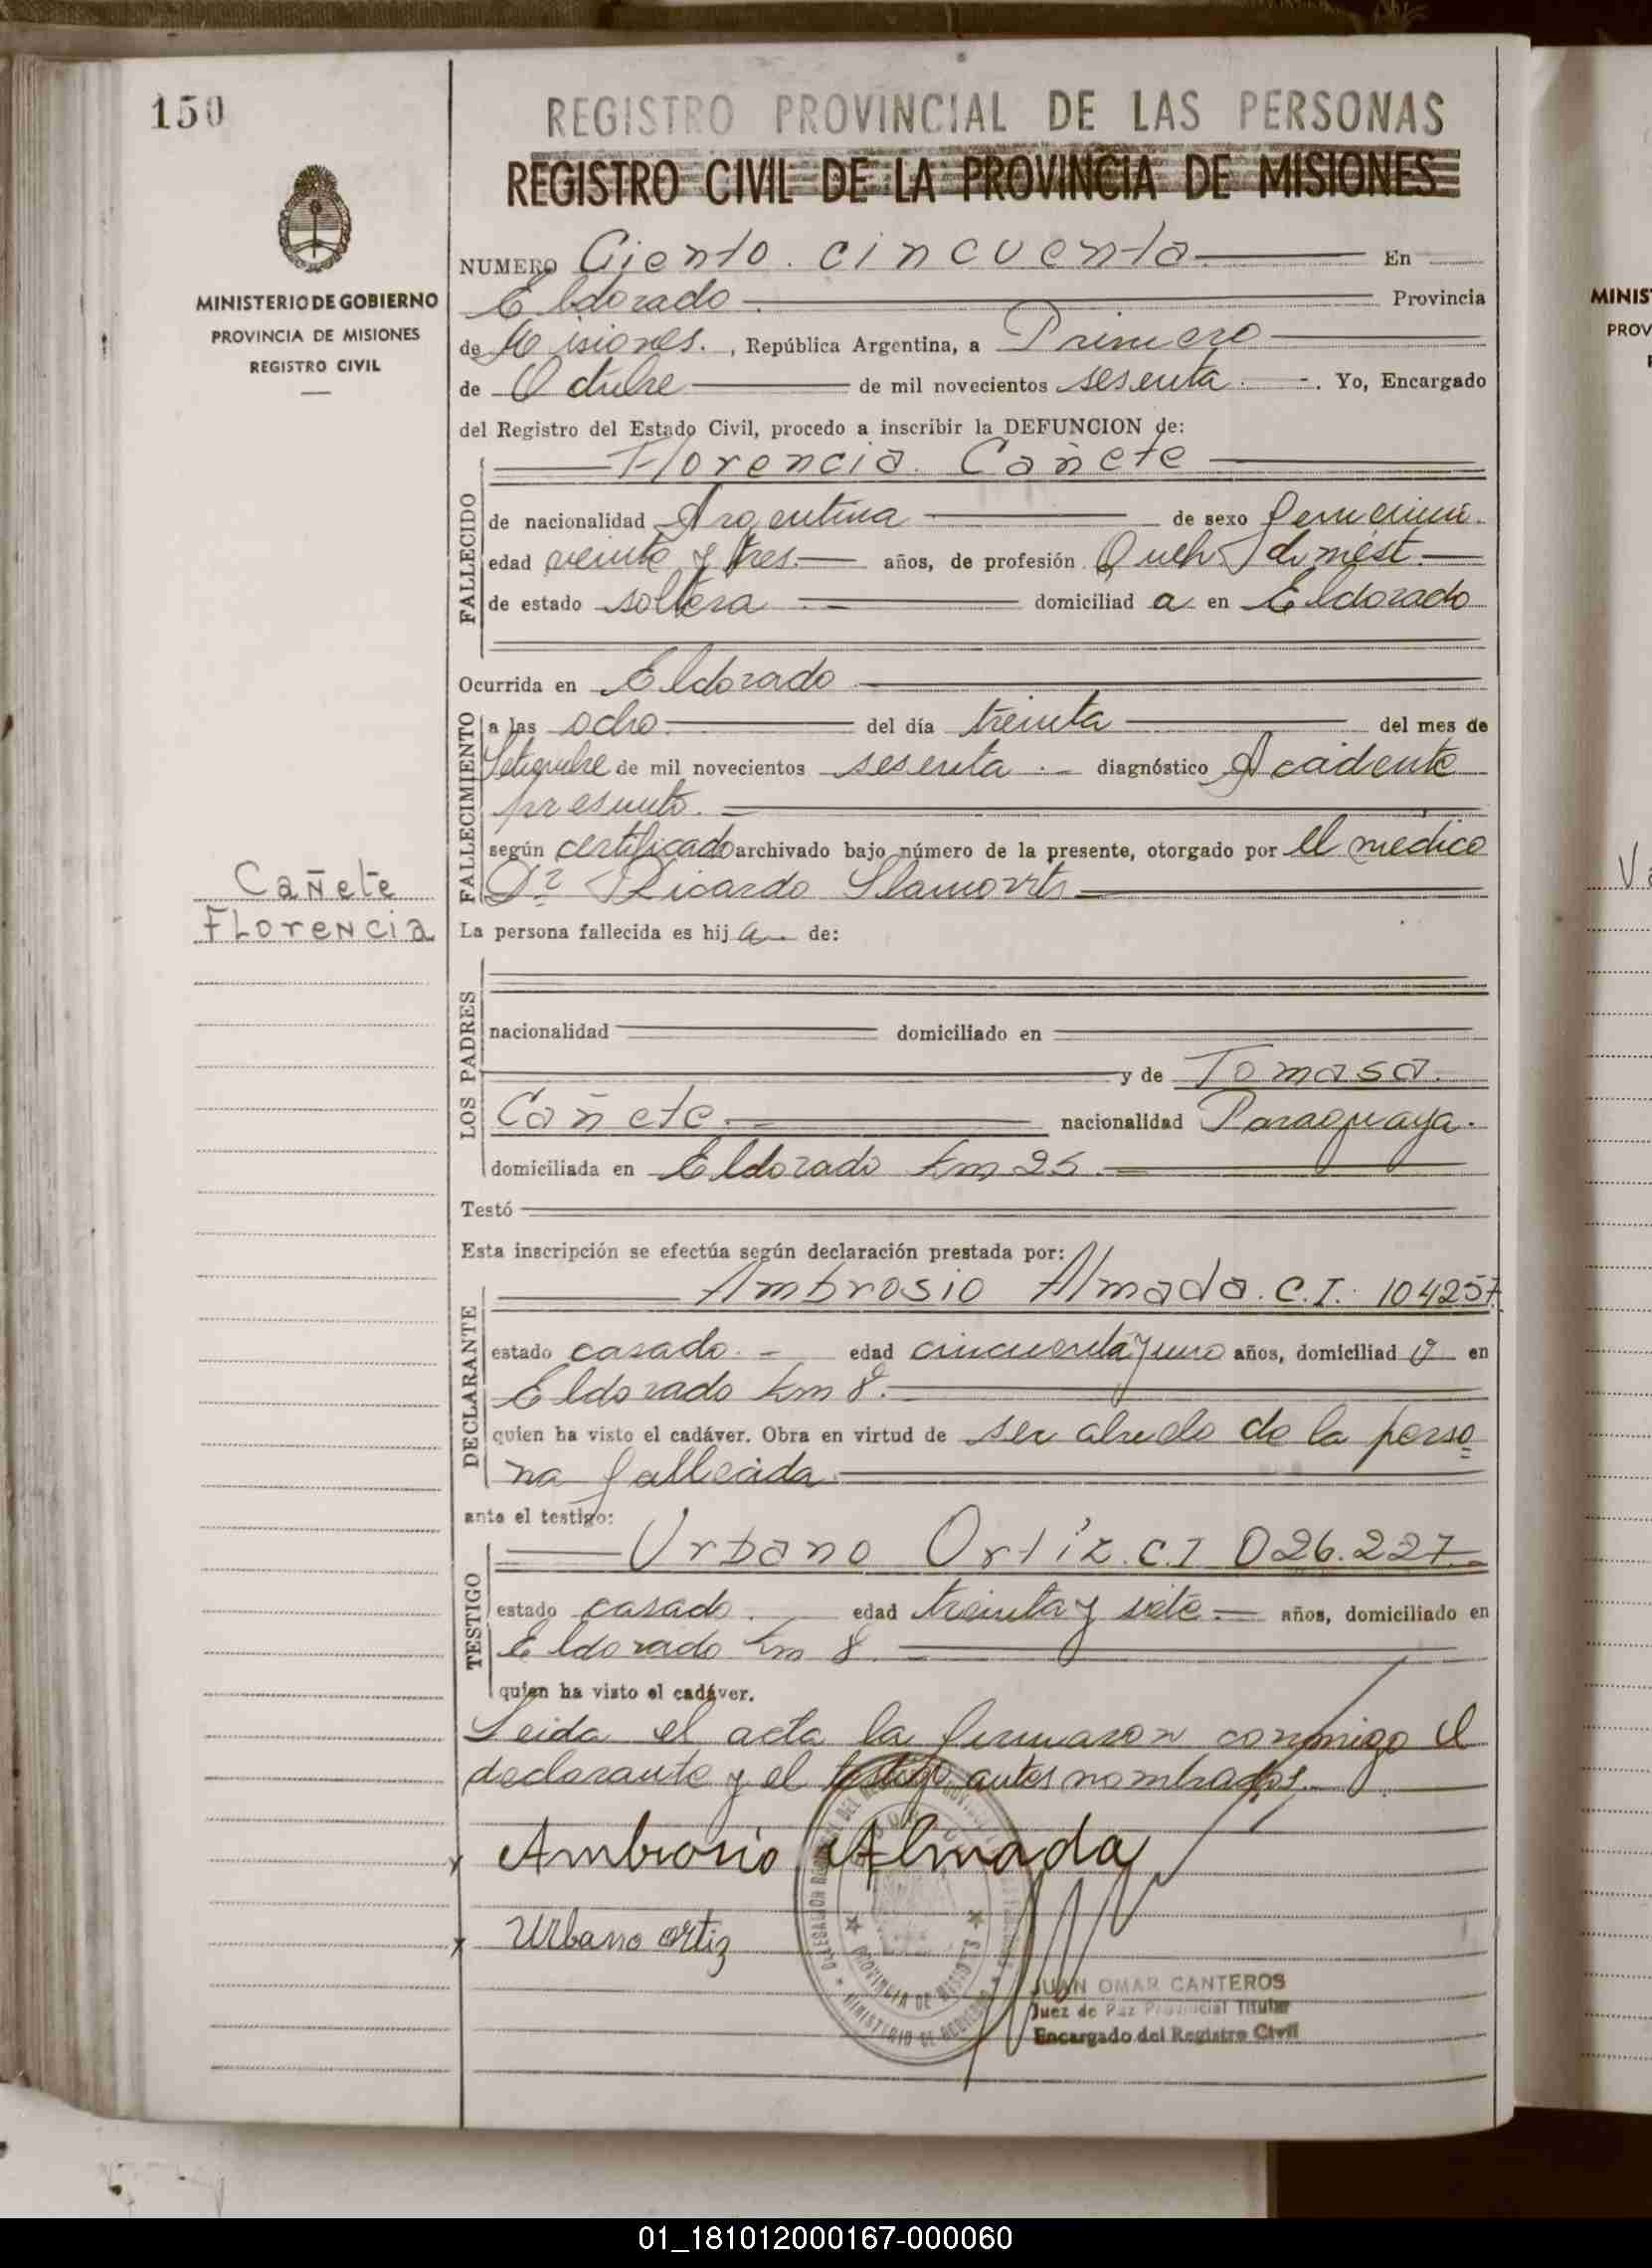 150
REGISTRO PROVINCIAL DE LAS PERSONAS
REGISTRO CIVIL DE LA PROVINCIA DE MISIONES
MINISTERIO DE GOBIERNO
PROVINCIA DE MISIONES
REGISTRO CIVIL
NUMERO Ciento cincuenta. En
Eldorado Provincia
de Misiones. , República Argentina, a Primero
de Octubre de mil novecientos sesenta . Yo, Encargado
del Registro del Estado Civil, procedo a inscribir la DEFUNCION de:
Florencia Cañete
FALLECIDO
de nacionalidad Argentina de sexo femenino.
edad veinte y tres años, de profesión Queh. domést.
de estado soltera domiciliad a en Eldorado
Ocurrida en Eldorado
FALLECIMIENTO
a las ocho del día treinta del mes de
Setiembre de mil novecientos sesenta . diagnóstico Acidente
presunto.
según certificado archivado bajo número de la presente, otorgado por el médico
Dr Ricardo
Cañete
Florencia
La persona fallecida es hij a de:
LOS PADRES
nacionalidad domiciliado en
y de Tomasa
Cañete nacionalidad Paraguaya.
domiciliada en Eldorado km 25.
Testó
Esta inscripción se efectúa según declaración prestada por:
Ambrosio Almada. C.I. 104257
DECLARANTE
estado casado. edad cincuenta y uno años, domiciliad o en
Eldorado km 8.
quien ha visto el cadáver. Obra en virtud de ser abuelo de la perso
na fallecida
ante el testigo:
Urbano Ortíz. C.I 026.227
TESTIGO
estado casado. edad treinta y siete años, domiciliado en
Eldorado km 8
quien ha visto el cadáver.
Leida el acta la firmaron conmigo el
declarante y el testigo antes nombrados.
x Ambrosio Almada
x Urbano ortiz
PROVINCIA DE MISIONES
MINISTERIO DE GOBIERNO
JUAN OMAR CANTEROS
Juez de Paz Provincial Titular
Encargado del Registro Civil
MINIS
PROV
01_181012000167-000060